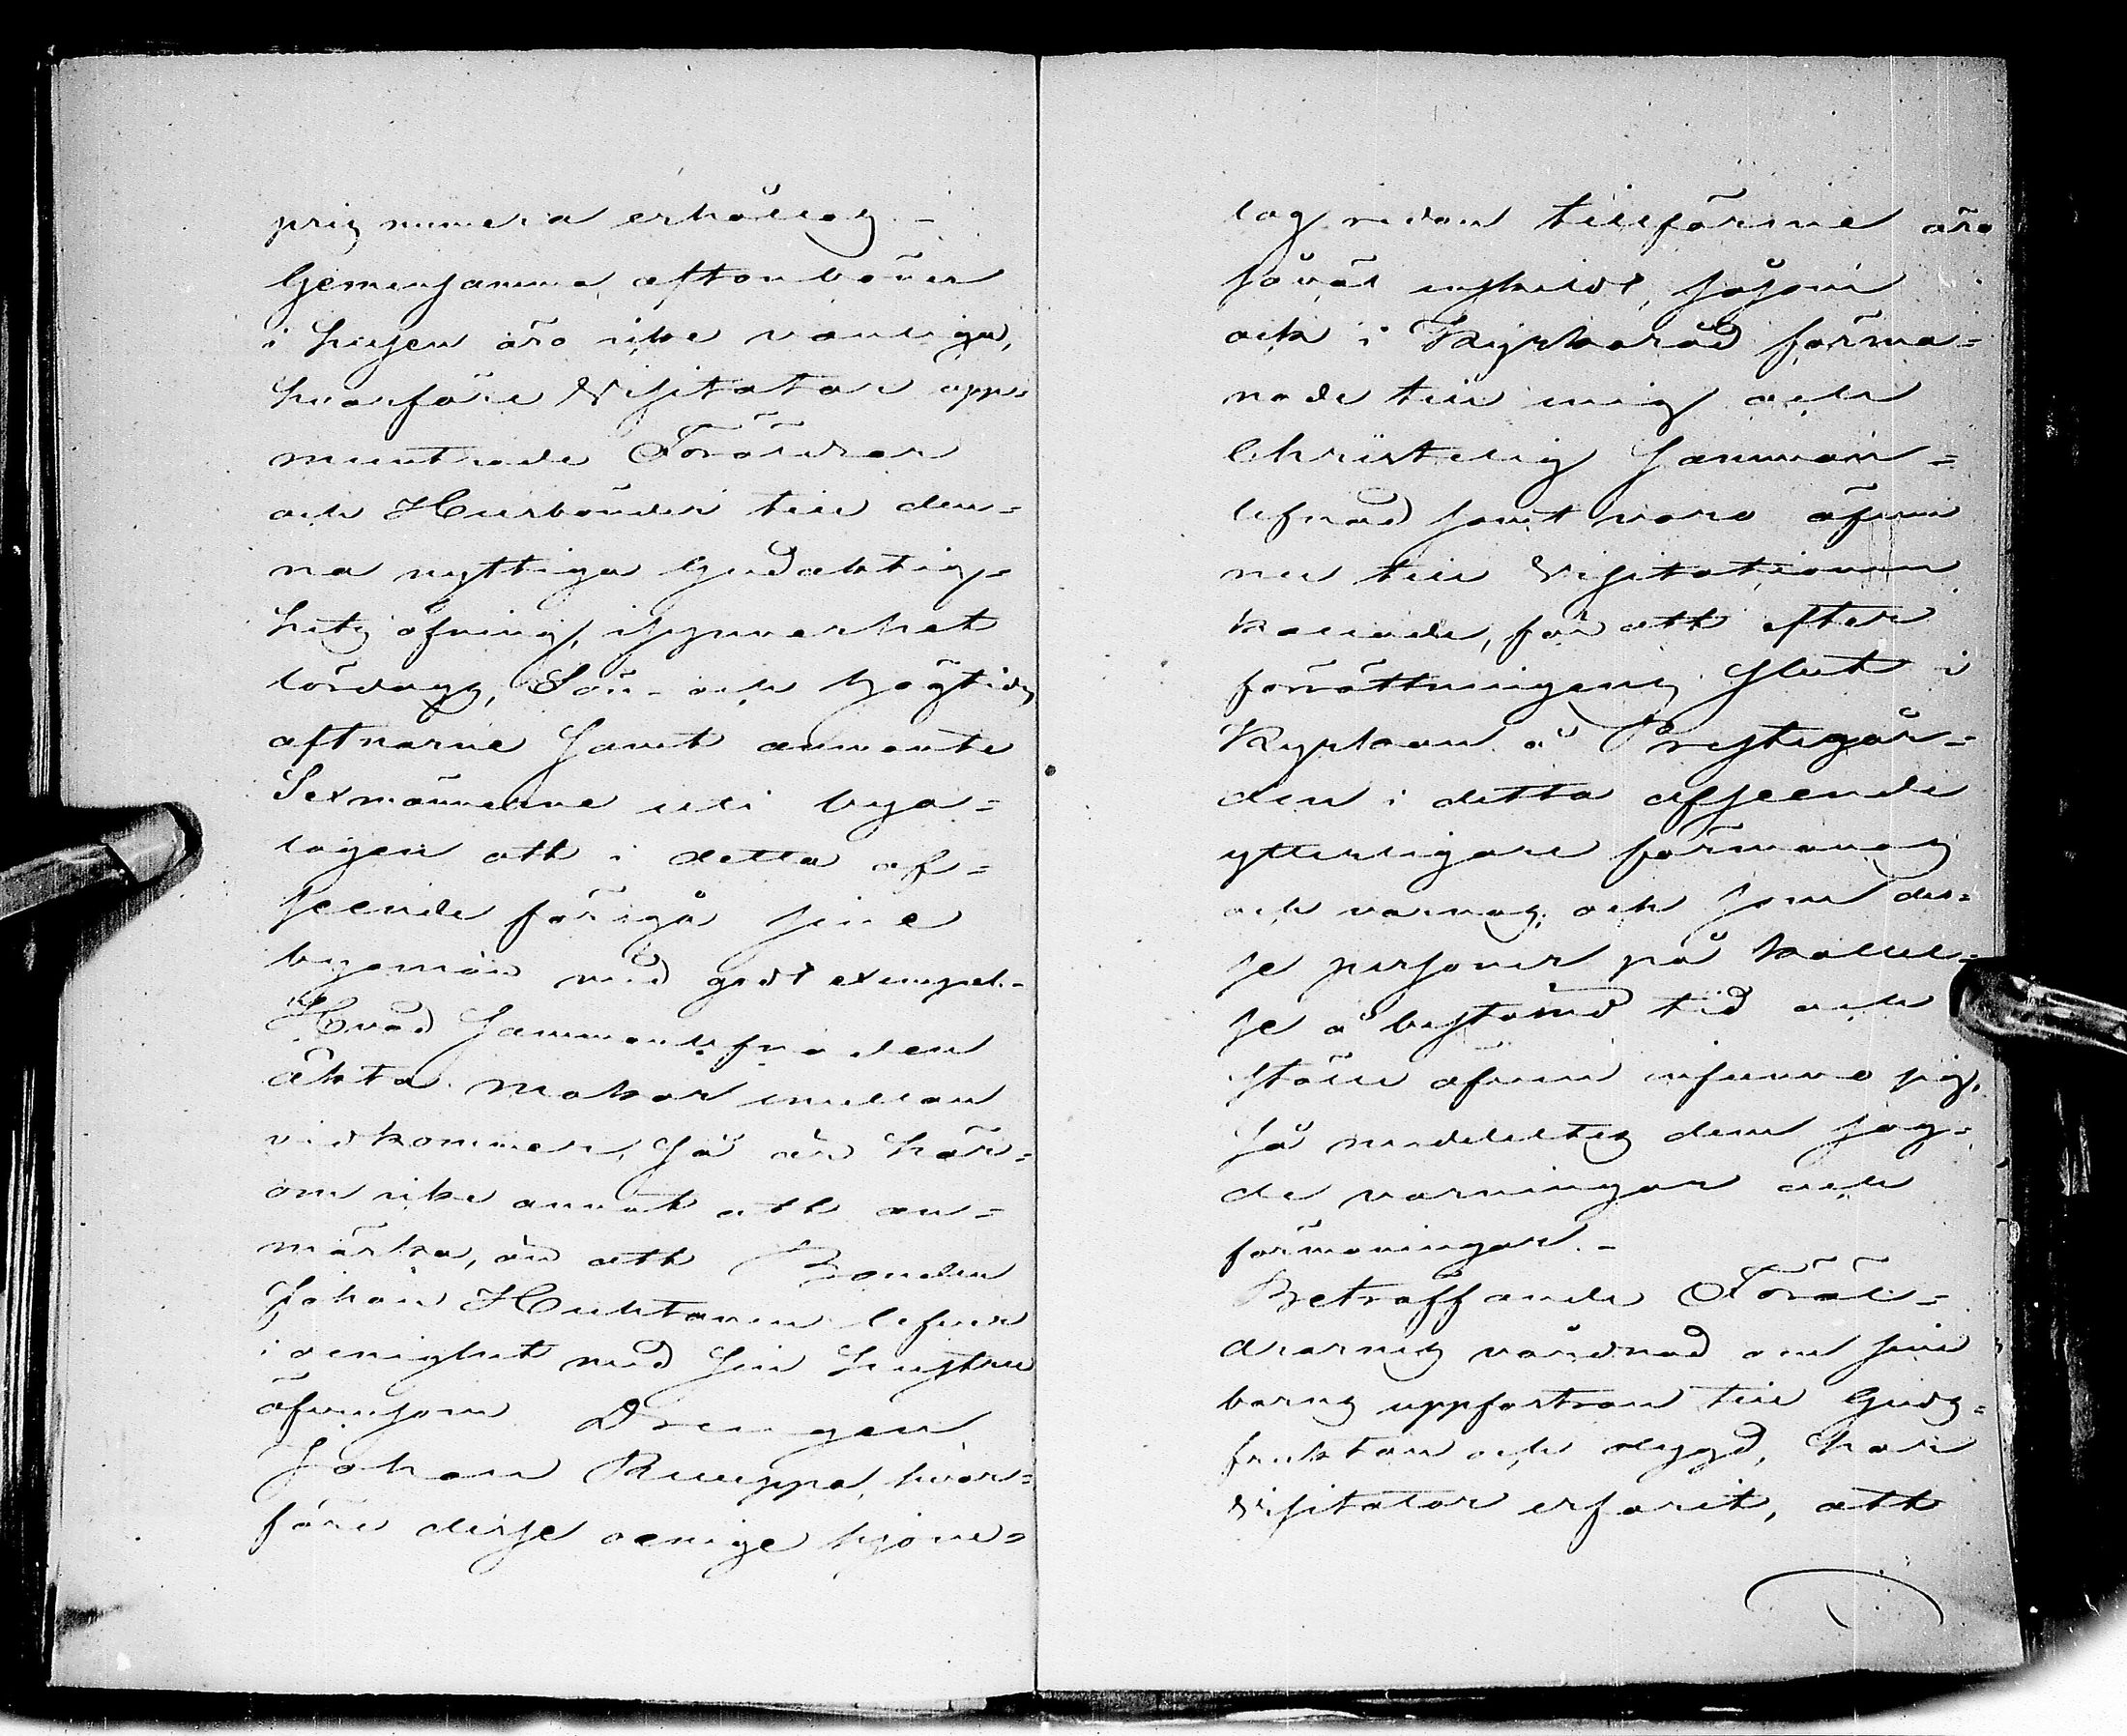 pris numera erhållas. –
Gemensamma aftonböner
i husen äro icke vanliga,
hvarföre Visitator upp-
muntrade Föräldrar
och Husbönder till den-
na nyttiga Gudaktig-
hets öfning, i synnerhet
lördags, Sön- och högtids
aftnarne samt anmante
Sexmännerne uti bya-
lagen att i detta af-
seende föregå sine
byamän med godt exempel. –
Hvad sammanlefnaden
äkta makar emellan
vidkommer, så är här-
om icke annat att an-
märka, än att Bonden
Johan Huhtanen lefver
i oenighet med sin hustru
äfvensom Drengen
Johan Ruuppa, hvar-
före desse oenige hjone-
lag redan tillförene äro
såväl enskildt, såsom
ock i Kyrkoråd förma-
nade till enig och
Christelig samman-
lefnad samt voro äfven
nu till Visitationen
kallade, för att efter
förrättningens slut i
Kyrkan å Prestegår-
den i detta afseende
ytterligare förmanas
och varnas, och som des-
se personer på kallel-
se å bestämd tid och
ställe äfven infunno sig,
så meddeltes dem sag-
de varningar och
förmaningar. –
Beträffande Föräl-
drarnes vårdnad om sine
barns uppfostran till Guds-
fruktan och dygd, har
Visitator erfarit, att